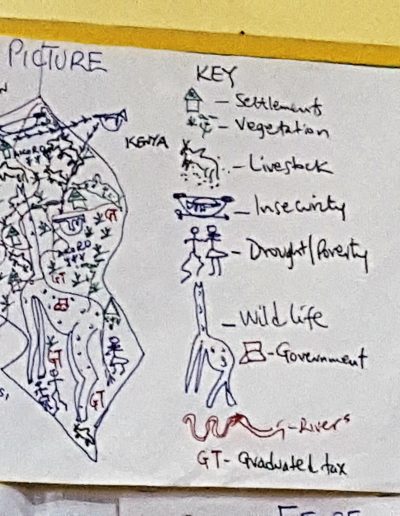 PICTURE
KEY
- Settlements
- Vegetation
KENYA
- Livestock
- Insecurity
- Drought/Poverty
GT
GT
- Wild life
- Government
GT
GT
- Rivers
GT - Graduated tax